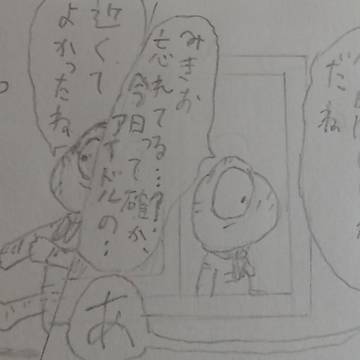 だね
みきお
忘れてる…!?
今日って確か、
アイドルの…
近くて
よかったね
あ